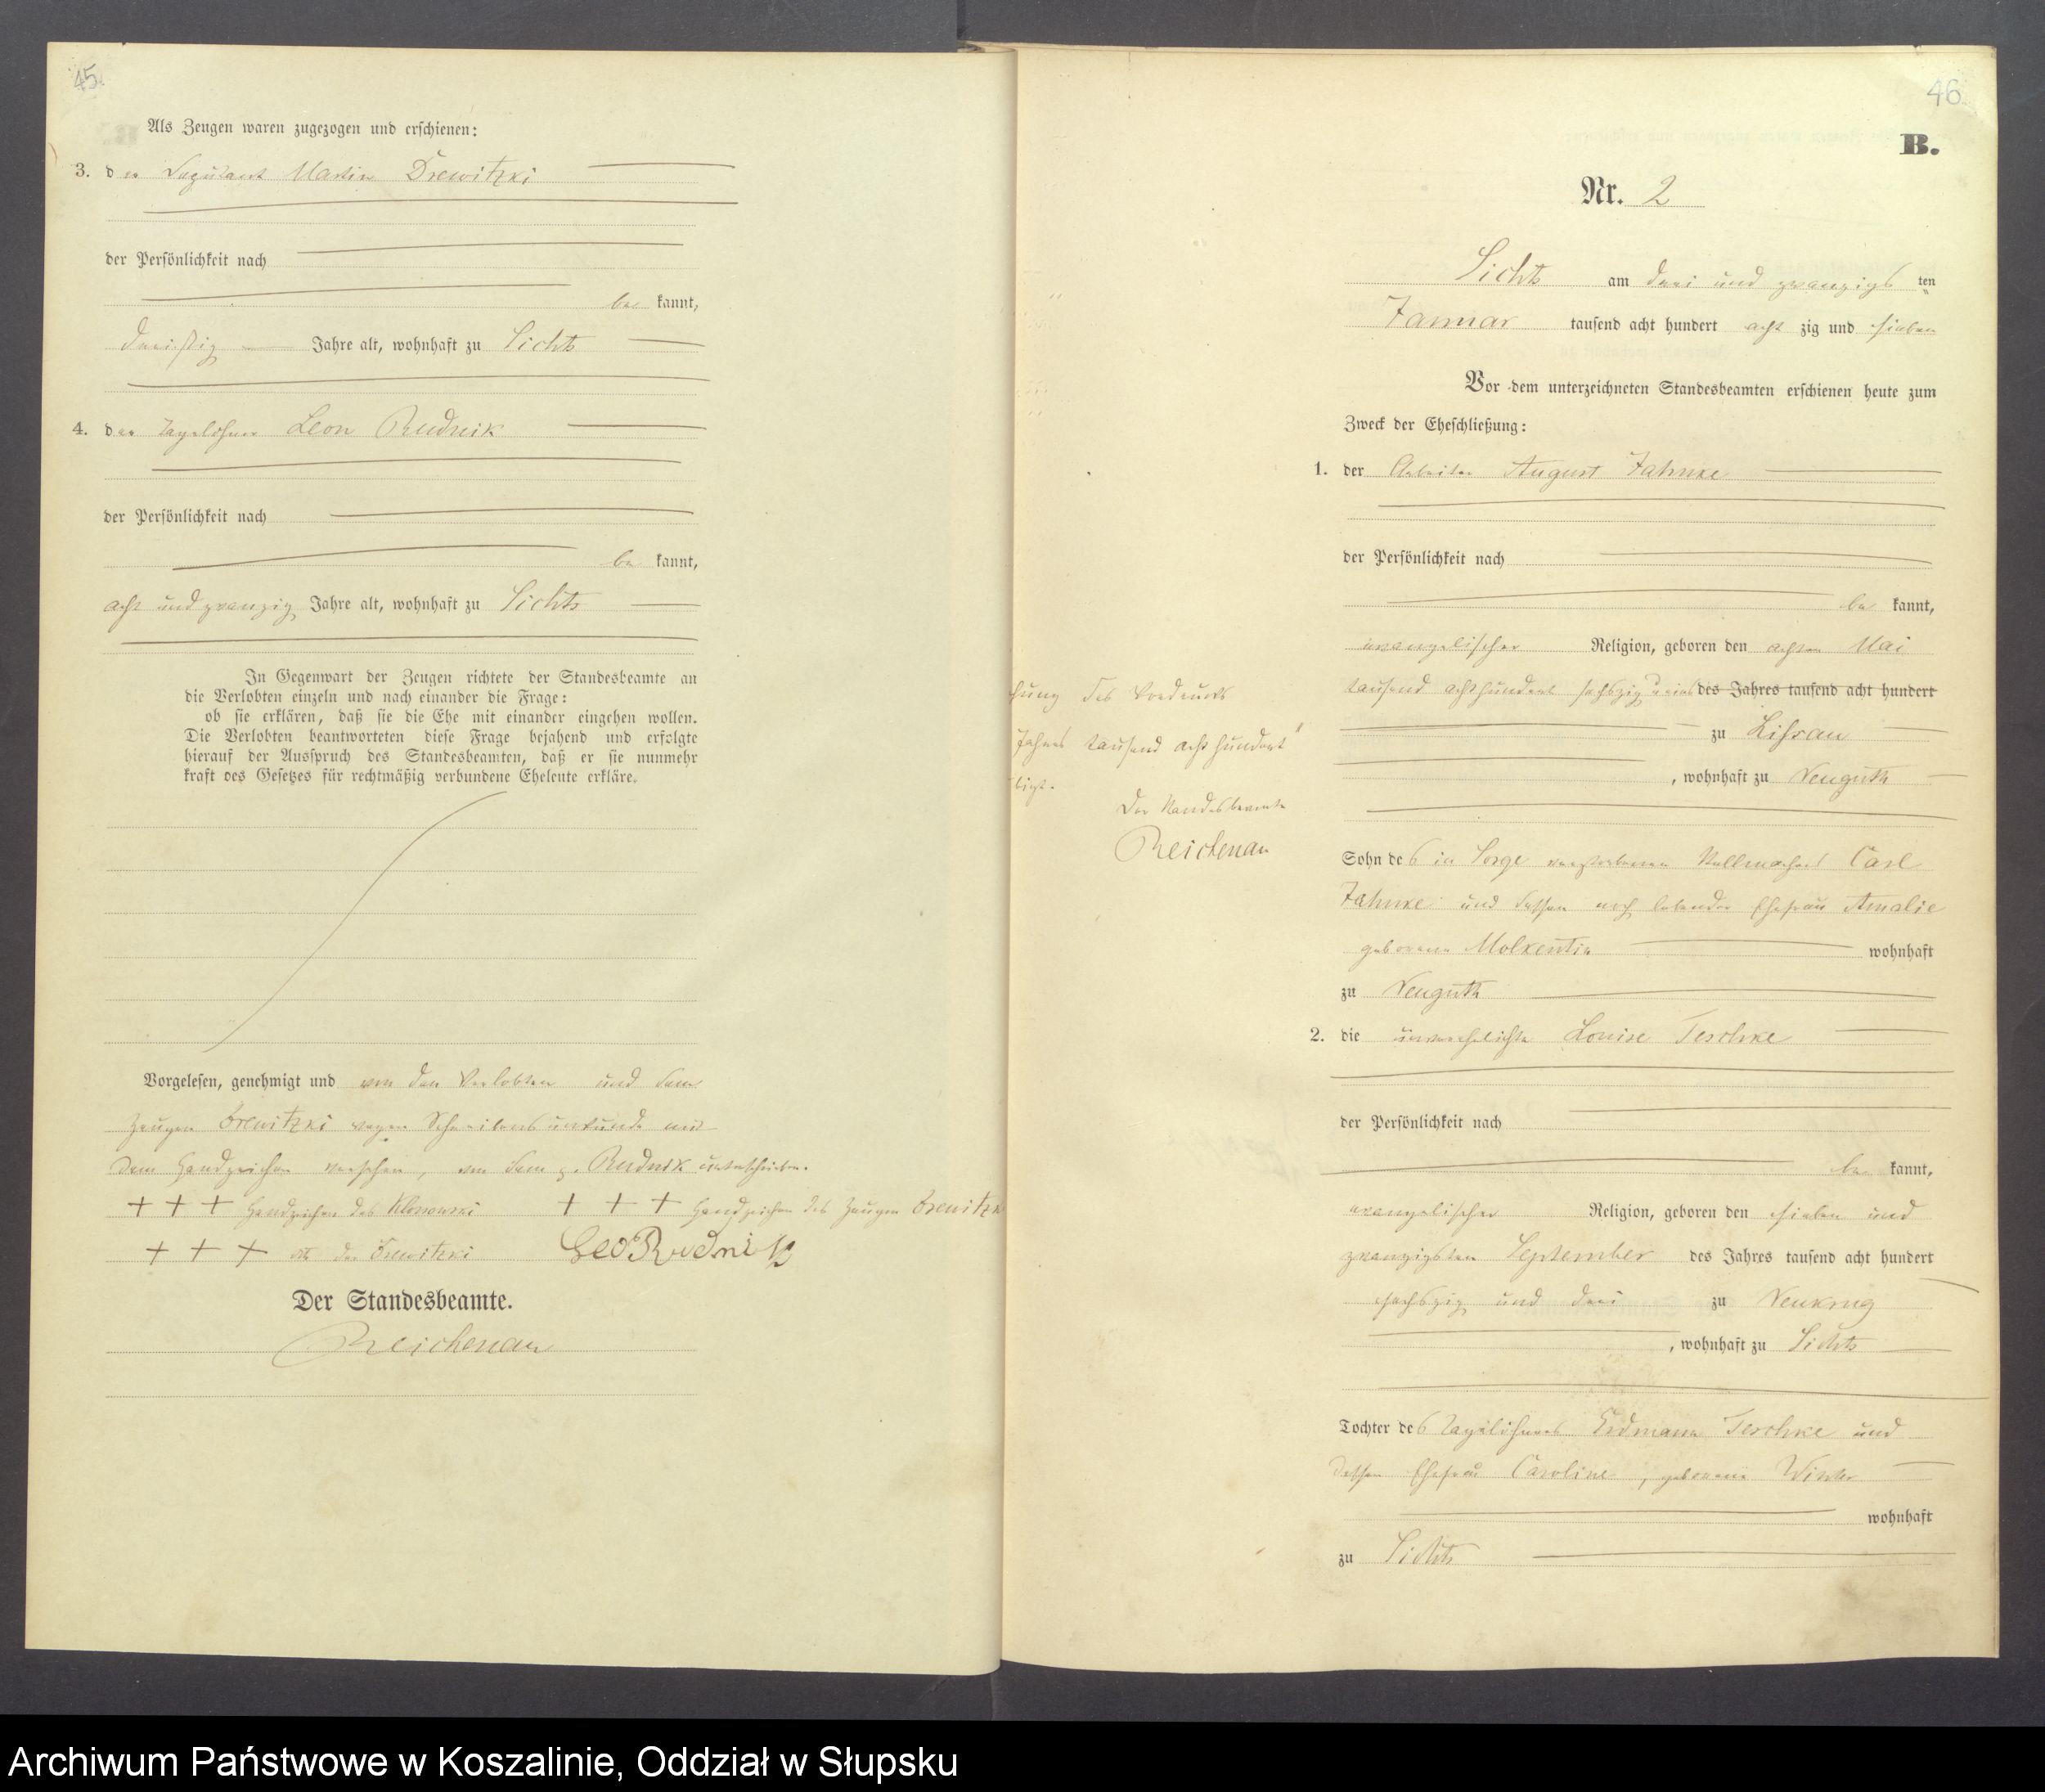 45.
Als Zeugen waren zugezogen und erschienen:
3. der Martin Drewitzki
der Persönlichkeit nach
be kannt,
dreißig Jahre alt, wohnhaft zu Sichts
4. der Tagelöhner Leon Rudnik
der Persönlichkeit nach
be kannt,
acht und zwanzig Jahre alt, wohnhaft zu Sichts
In Gegenwart der Zeugen richtete der Standesbeamte an
die Verlobten einzeln und nach einander die Frage:
ob sie erklären, daß sie die Ehe mit einander eingehen wollen.
Die Verlobten beantworteten diese Frage bejahend und erfolgte
hierauf der Ausspruch des Standesbeamten, daß er sie nunmehr
kraft des Gesetzes für rechtmäßig verbundene Eheleute erkläre.
Vorgelesen, genehmigt und von den Verlobten und dem
Zeugen Drewitzki wegen Schreibensunkunde mit
dem Handzeichen versehen, von dem p. Rudnik unterschrieben.
+ + + Handzeichen des Klonowski + + + Handzeichen des Zeugen Drewitzki
+ + + der Drewitzki Leo Rudnik
Der Standesbeamte.
Reichenau
46.
B.
Nr. 2
Sichts am drei und zwanzigs ten
Januar tausend acht hundert acht zig und sieben
Vor dem unterzeichneten Standesbeamten erschienen heute zum
Zweck der Eheschließung:
1. der Arbeiter August Jahnke
der Persönlichkeit nach
be kannt,
evangelischer Religion, geboren den achten Mai
tausend achthundert sechszig des Jahres tausend acht hundert
zu Lissau
, wohnhaft zu Neuguth
Sohn des in Sorge verstorbenen Stellmachers Carl
Jahnke und dessen noch lebender Ehefrau Amalie
geborene Molkentin wohnhaft
zu Neuguth
2. die unverehelichte Louise Teschke
der Persönlichkeit nach
be kannt,
evangelischer Religion, geboren den sieben und
zwanzigsten September des Jahres tausend acht hundert
sechszig und drei zu Neukrug
, wohnhaft zu Sichts
Tochter des Tagelöhners Erdmann Teschke und
dessen Ehefrau Caroline, geborene Winter
wohnhaft
zu Sichts
des Vordrucks
Jahres tausend acht hundert"
Der Standesbeamte
Reichenau
Archiwum Państwowe w Koszalinie, Oddział w Słupsku